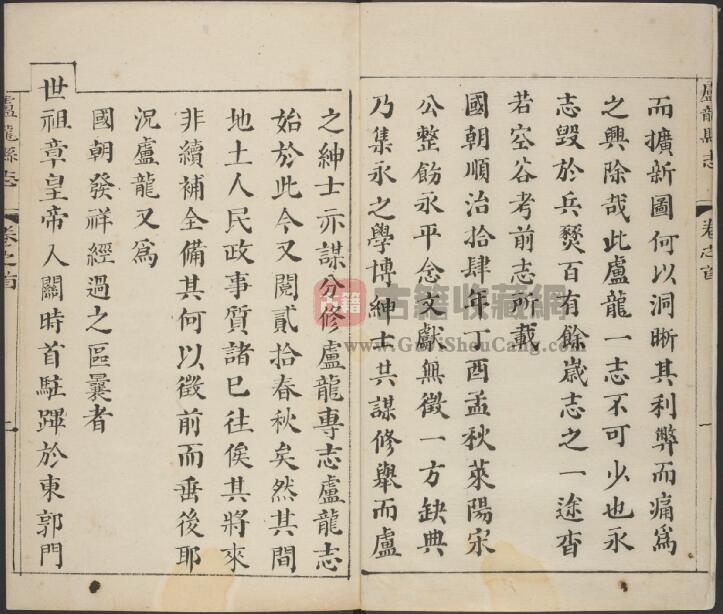 盧龍縣志
卷之首
一
而擴新圖何以洞晰其利弊而痛爲
之興除哉此盧龍一志不可少也永
志毀於兵燹百有餘歲志之一途杳
若空谷考前志所載
國朝順治拾肆年丁酉孟秋萊陽宋
公整飭永平念文獻無徵一方缺典
乃集永之學博紳士共謀修舉而盧
之紳士亦謀分修盧龍專志盧龍志
始於此今又閱貳拾春秋矣然其間
地土人民政事質諸已往俟其將來
非續補全備其何以徵前而垂後耶
況盧龍又爲
國朝發祥經過之區曩者
世祖章皇帝入關時首駐蹕於東郭門
盧龍縣志
卷之首
古籍
古籍收藏网
www.GuJiShouCang.com